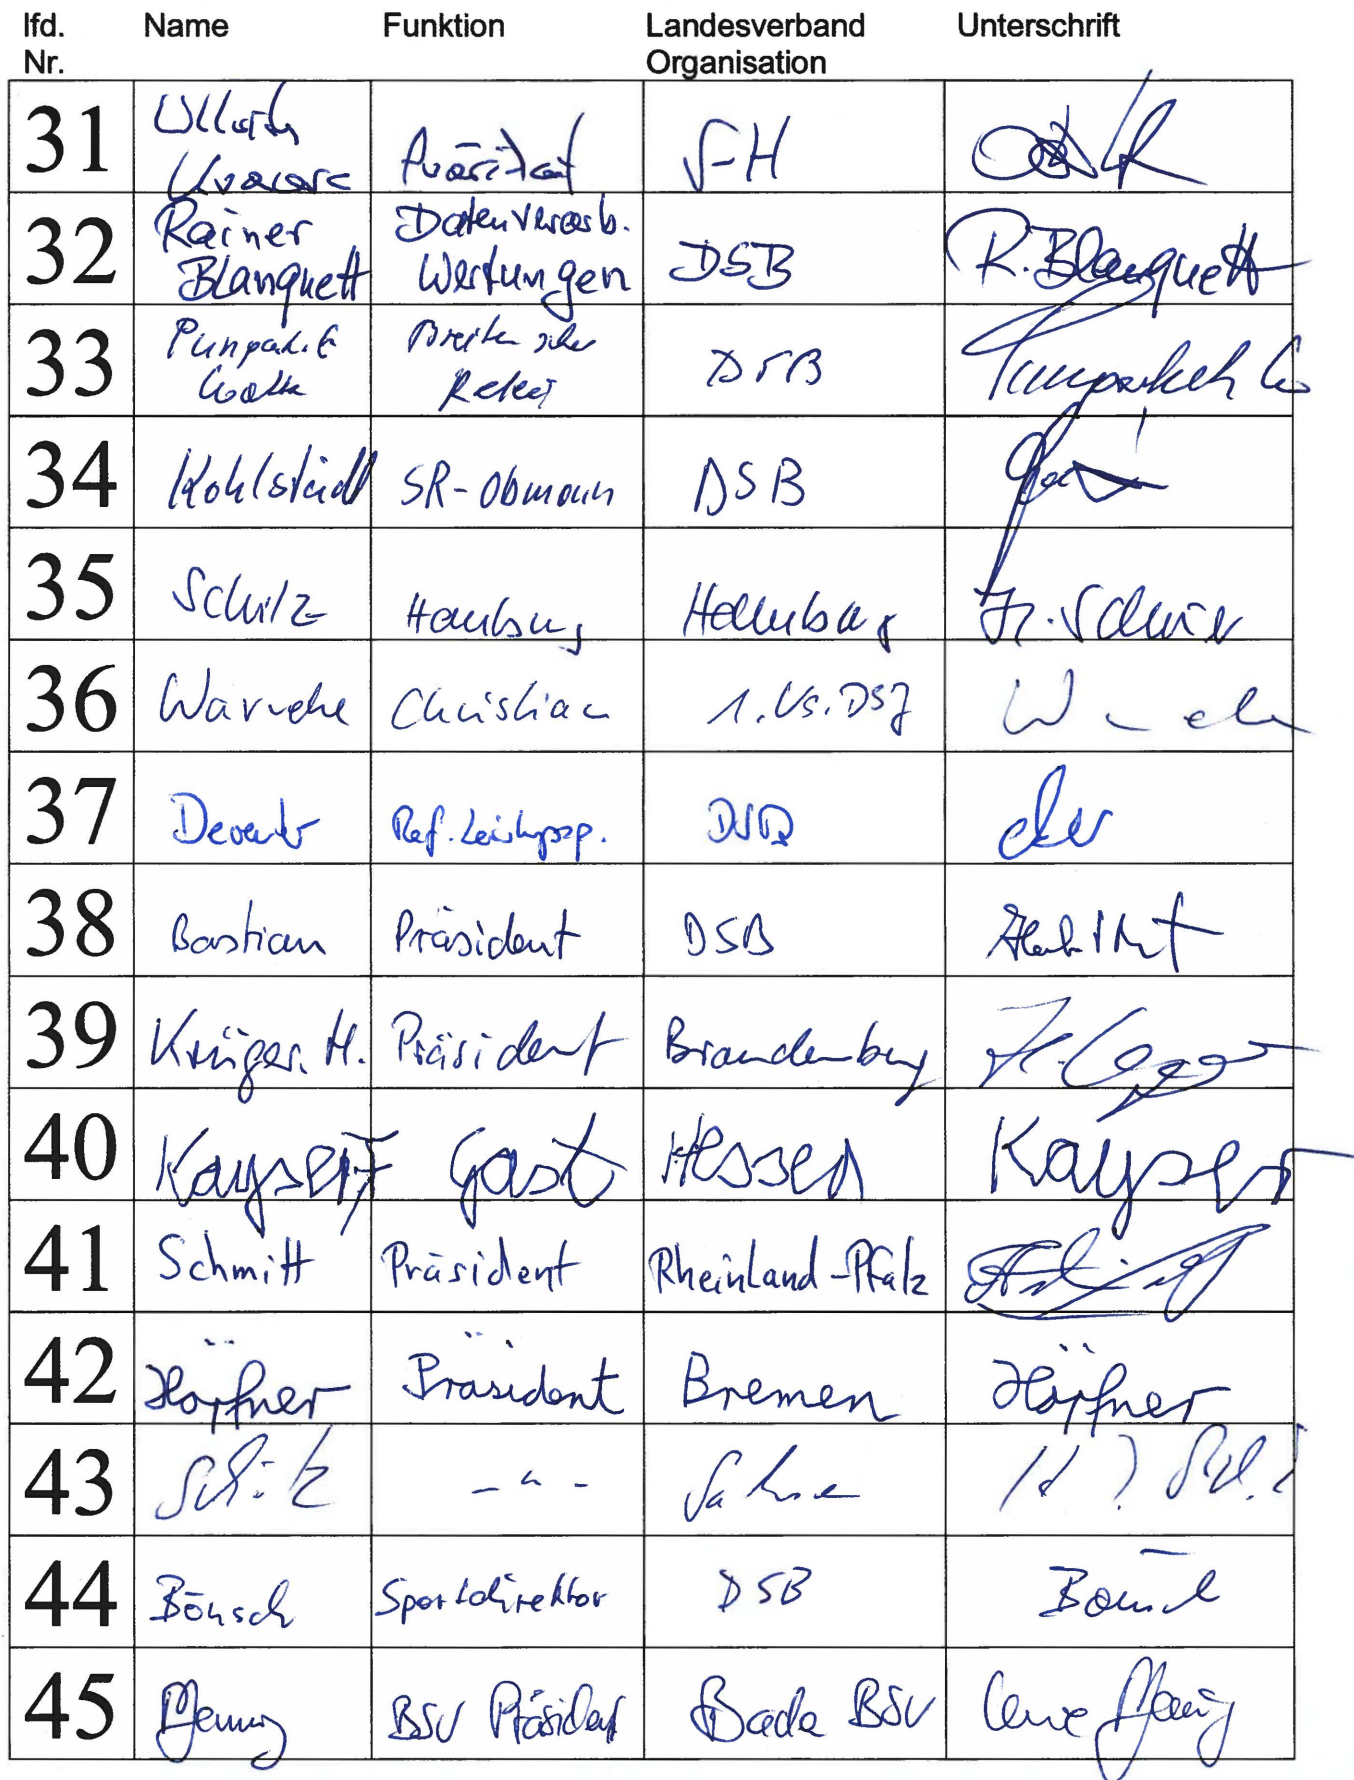 lfd. Nr. Name Funktion Landesverband Organisation Unterschrift
31 Präsident S-H
32 Rainer Blanquett Datenverarb. Wertungen DSB R. Blanquett
33 DSB
34 Kohlstädt SR-Obmann DSB
35 Schulz Hamburg Hamburg
36 Warneke Christian 1. Vs. DSJ
37 Deventer Ref. Leistgssp. DSB
38 Bastian Präsident DSB
39 Krüger. H. Präsident Brandenburg
40 Kayser F Gast Hessen Kayser
41 Schmitt Präsident Rheinland-Pfalz
42 Höpfner Präsident Bremen Höpfner
43 - " -
44 Bönsch Sportdirektor DSB Bönsch
45 Pfenning BSV Präsident Baden BSV Uwe Pfenning